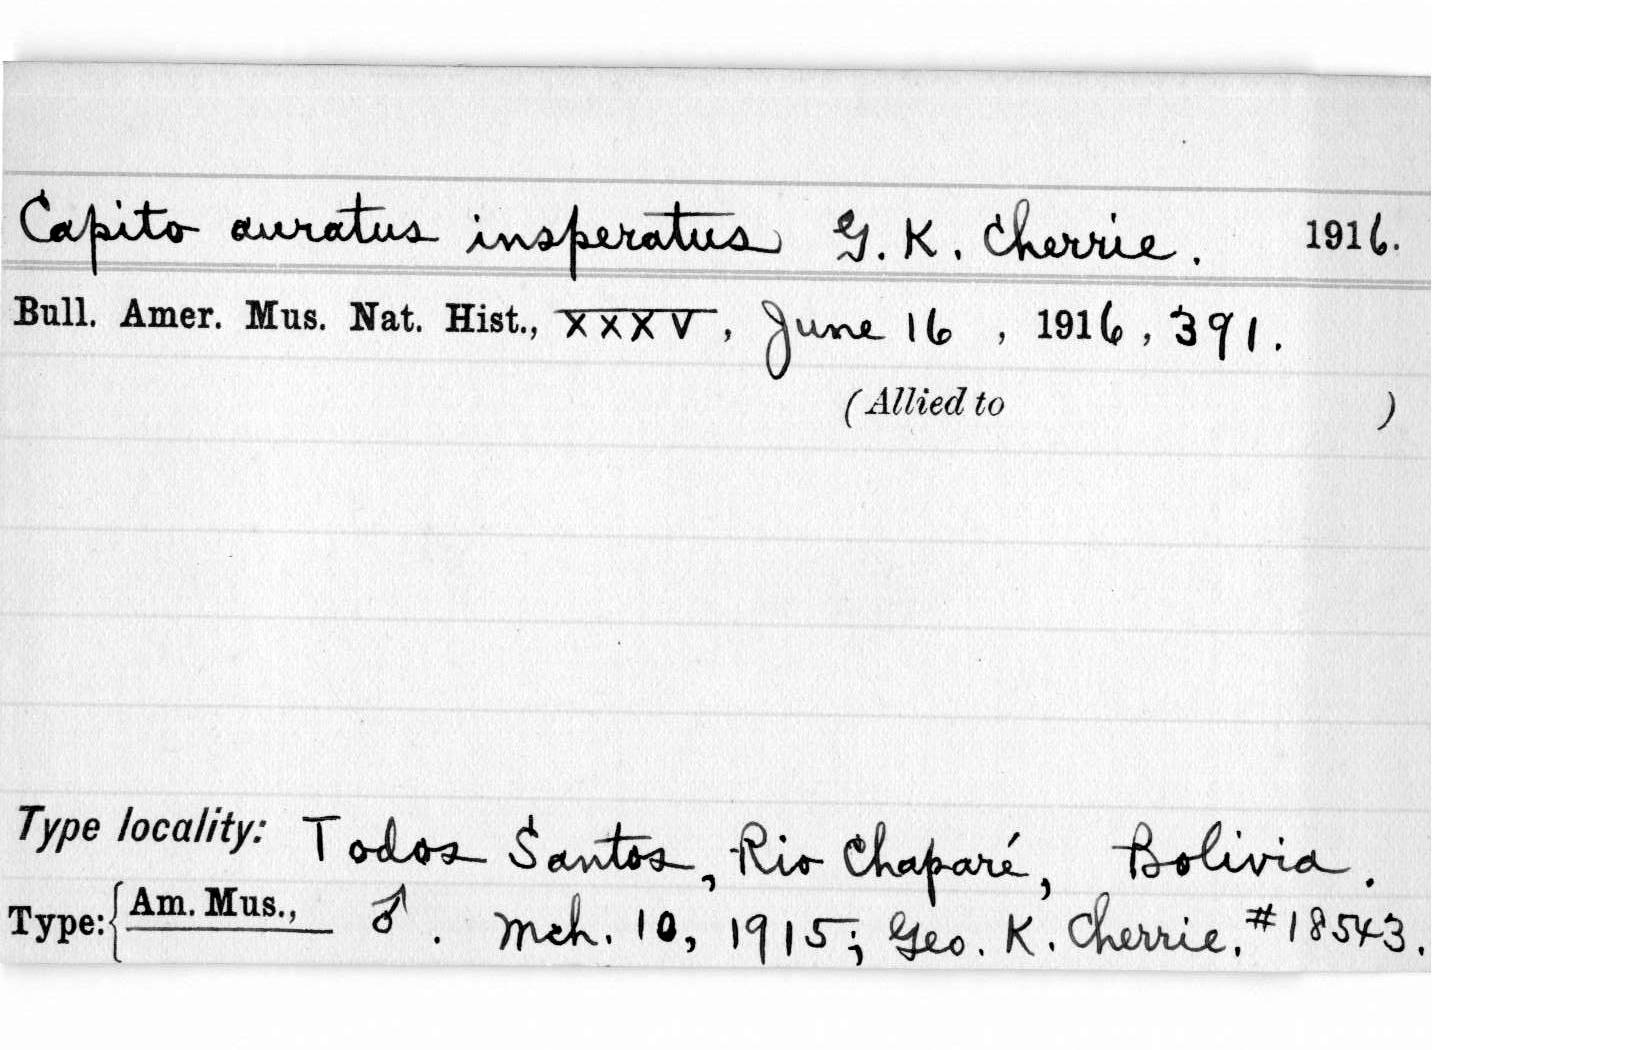 Capito auratus insperatus G. K. Cherrie. 1916.
Bull. Amer. Mus. Nat. Hist., XXXV, June 16, 1916, 391.
(Allied to )
Type locality: Todos Santos, Rio Chaparé, Bolivia.
Type: { Am. Mus., ♂. Mch. 10, 1915; Geo. K. Cherrie. #18543.